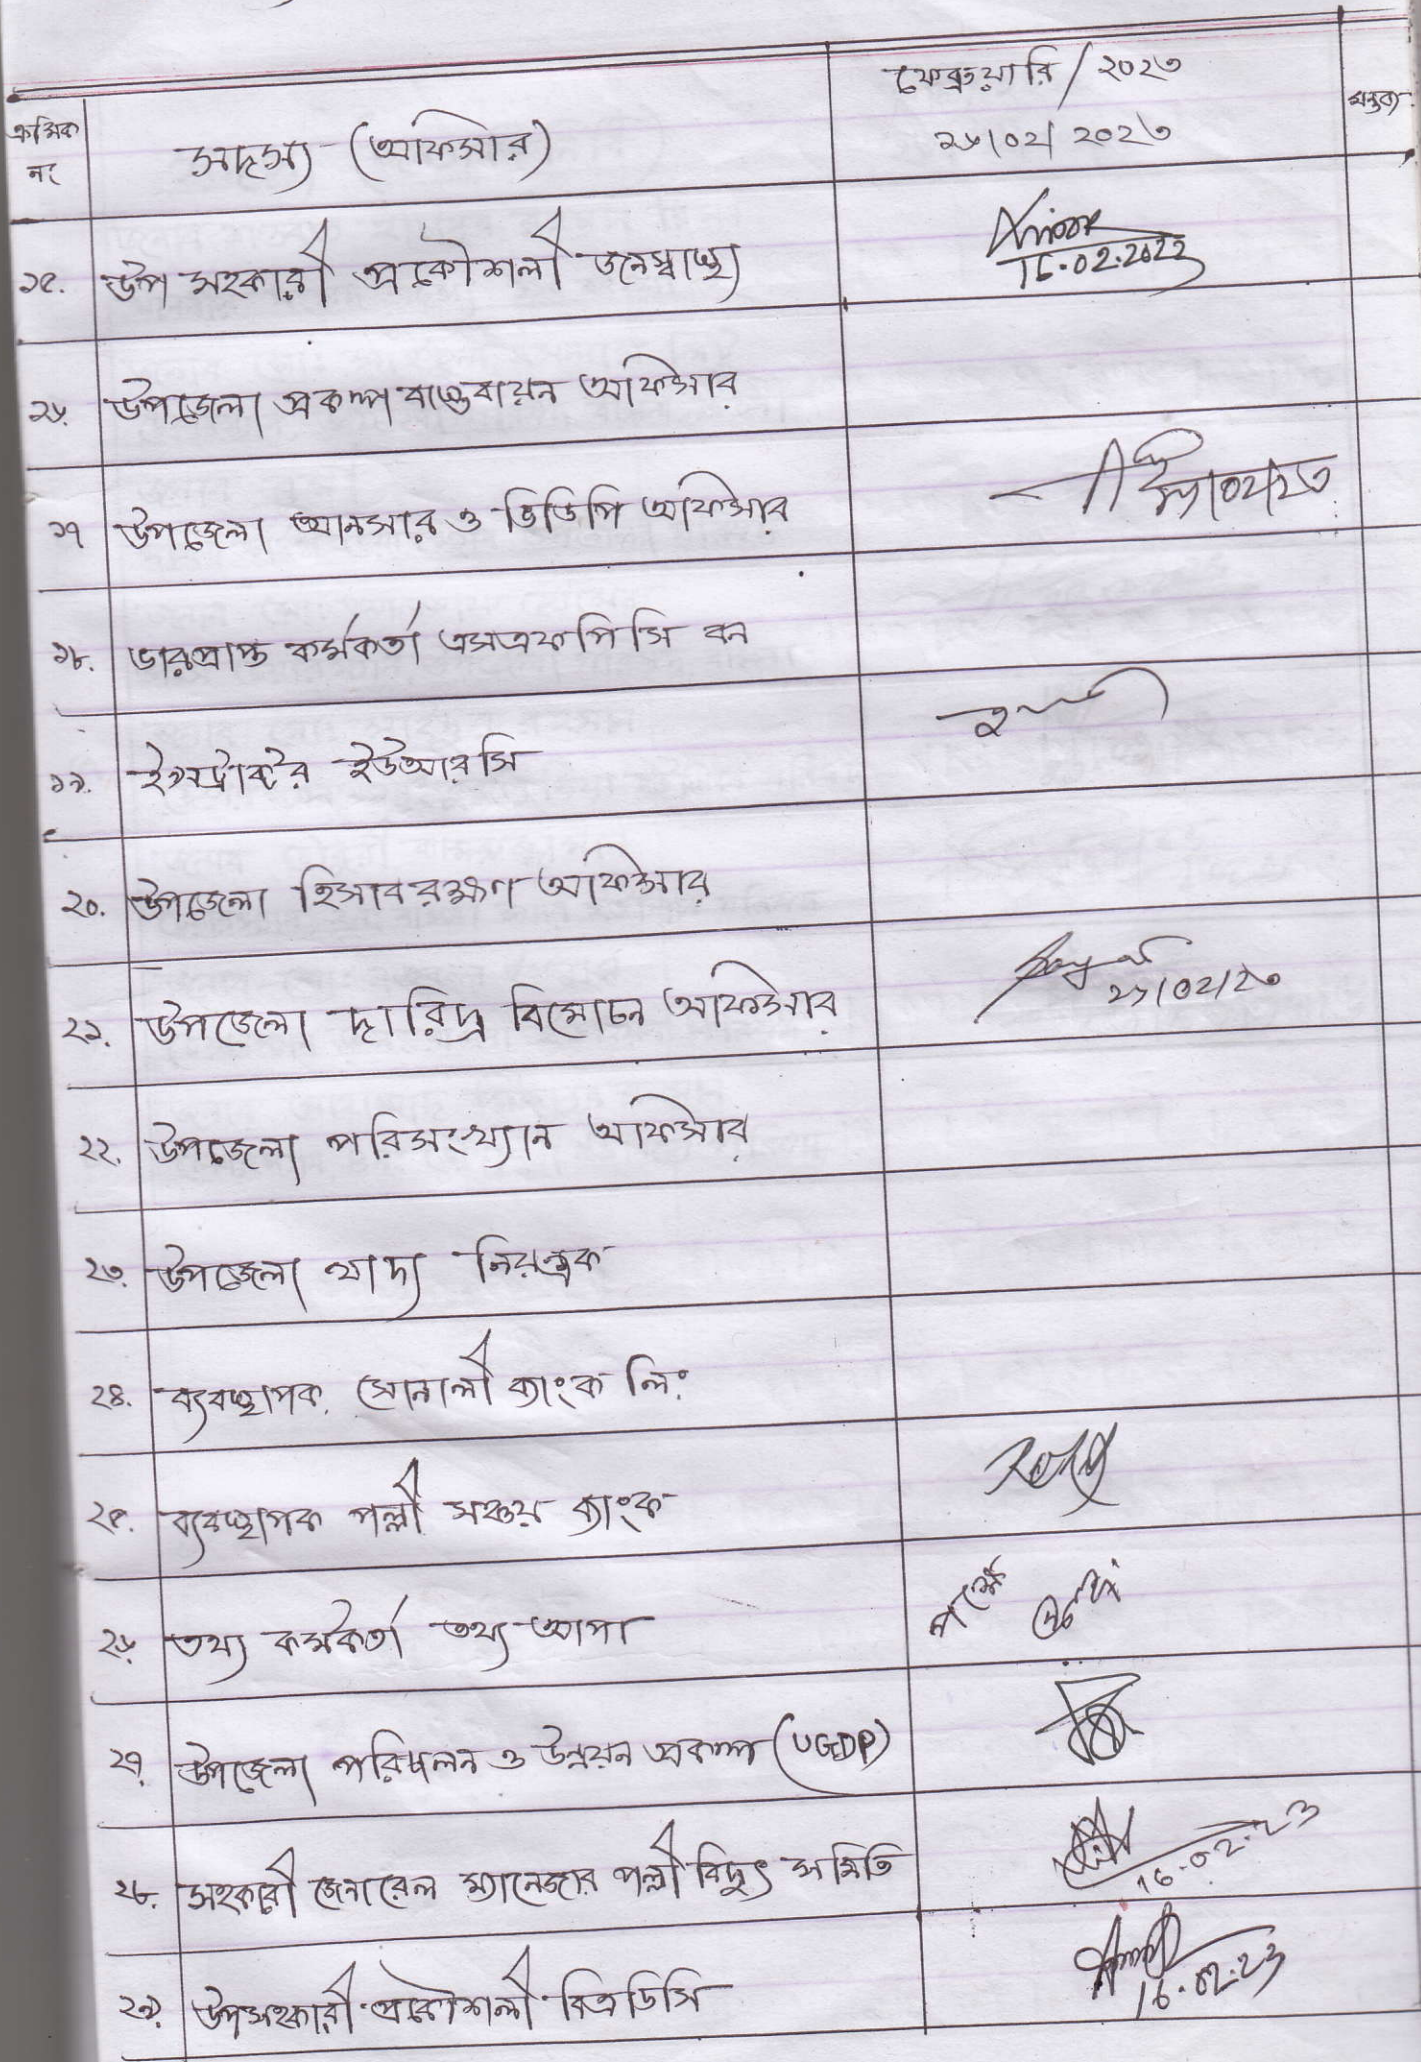 ফেব্রুয়ারি / ২০২৩
ক্রমিক নং
সদস্য (অফিসার)
১৬/০২/ ২০২৩
মন্তব্য
১৫. উপ সহকারী প্রকৌশলী জনেস্বাস্থ্য
16.02.2023
১৬. উপজেলা প্রকল্প বাস্তবায়ন অফিসার
১৭ উপজেলা আনসার ও ভিডিপি অফিসার
১৮. ভারপ্রাপ্ত কর্মকর্তা এসএফপিসি বন
১৯. ইন্সট্রাক্টর ইউআরসি
২০. উপজেলা হিসাব রক্ষণ অফিসার
২১. উপজেলা দারিদ্র বিমোচন অফিসার
২২. উপজেলা পরিসংখ্যান অফিসার
২৩. উপজেলা খাদ্য নিয়ন্ত্রক
২৪. ব্যবস্থাপক, সোনালী ব্যাংক লিঃ
২৫. ব্যবস্থাপক পল্লী সঞ্চয় ব্যাংক
২৬. তথ্য কর্মকর্তা তথ্য আপা
২৭. উপজেলা পরিচালন ও উন্নয়ন প্রকল্প (UGDP)
২৮. সহকারী জেনারেল ম্যানেজার পল্লী বিদ্যুৎ সমিতি
16.02.23
২৯. উপসহকারী প্রকৌশলী বিএডিসি
16.02.23